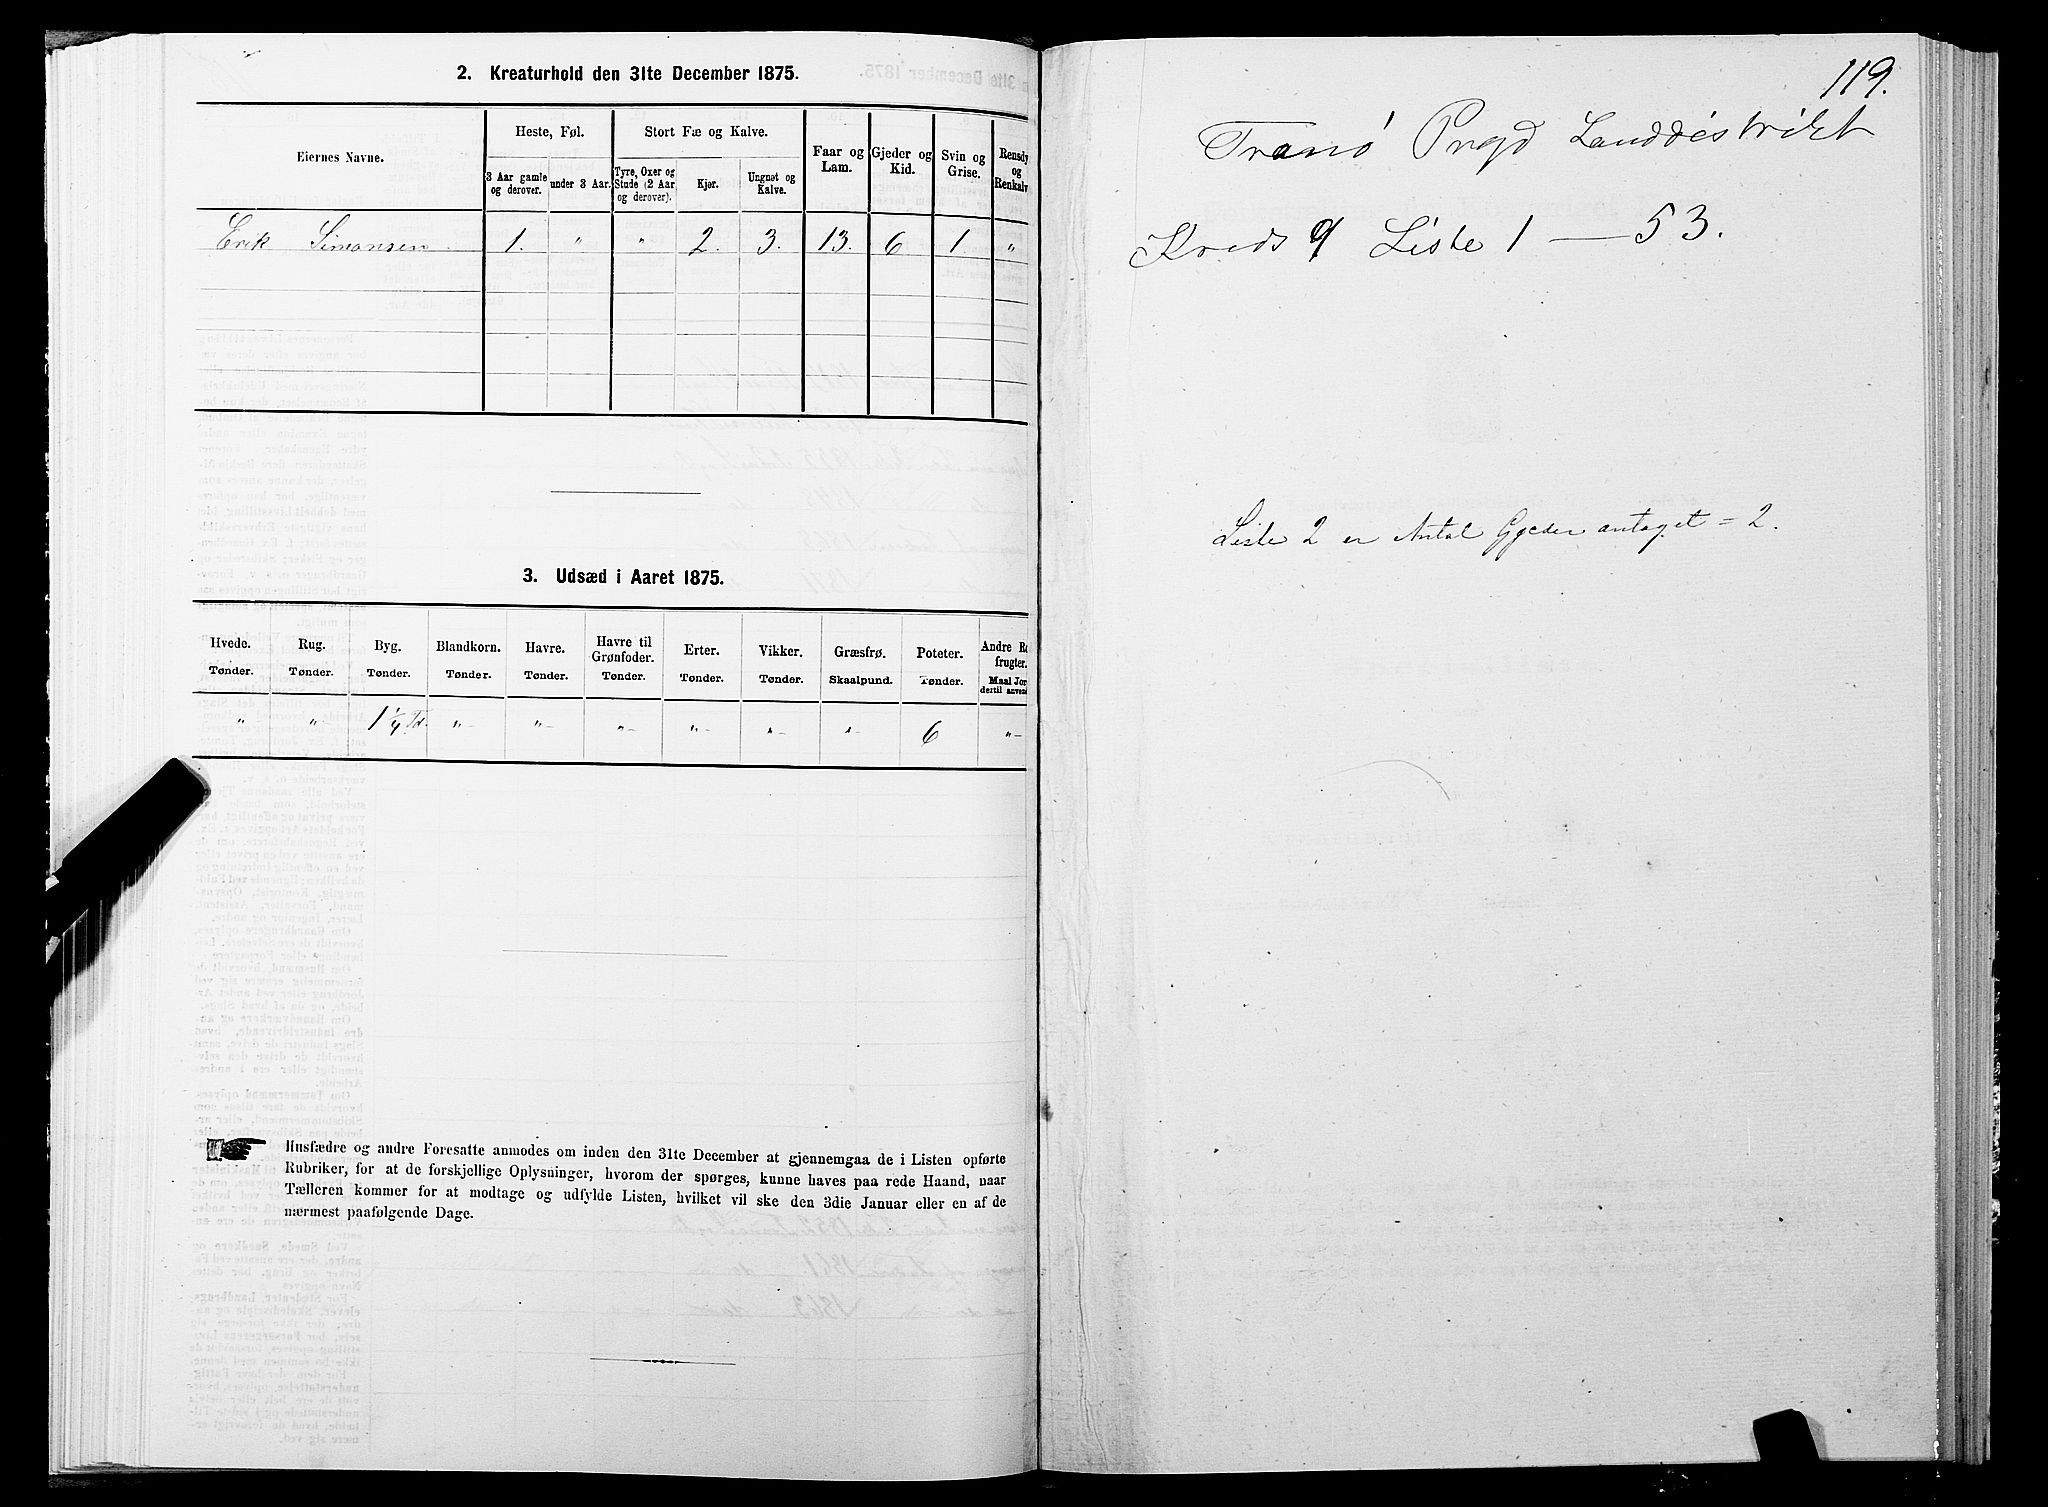 2. Kreaturhold den 31te December 1875.
Eiernes Navne.
Heste, Føl.
Stort Fæ og Kalve.
Faar og Lam.
Gjeder og Kid.
Svin og Grise.
Rensdy
og
Renkalv
3 Aar gamle og derover.
under 3 Aar.
Tyre, Oxer og Stude (2 Aar og derover).
Kjør.
Ungnøt og Kalve.
Erik Simonsen 1. " " 2. 3. 13. 6 1 "
3. Udsæd i Aaret 1875.
Hvede. Rug. Byg. Blandkorn. Havre. Havre til Grønfoder. Erter. Vikker. Græsfrø. Poteter. Andre Ro
frugter.
Tønder. Tønder. Tønder. Tønder. Tønder. Tønder. Tønder. Tønder. Skaalpund. Tønder. Maal Jor
dertil anven
" " 1 1/4 Td. " " " " " " 6 "
Husfædre og andre Foresatte anmodes om inden den 31te December at gjennemgaa de i Listen opførte
Rubriker, for at de forskjellige Oplysninger, hvorom der spørges, kunne haves paa rede Haand, naar
Tælleren kommer for at modtage og udfylde Listen, hvilket vil ske den 3die Januar eller en af de
nærmest paafølgende Dage.
119.
Tranö Prgd Landdistrikt
Kreds 9 Liste 1 — 53.
Liste 2 er Antal Gjeder antaget = 2.